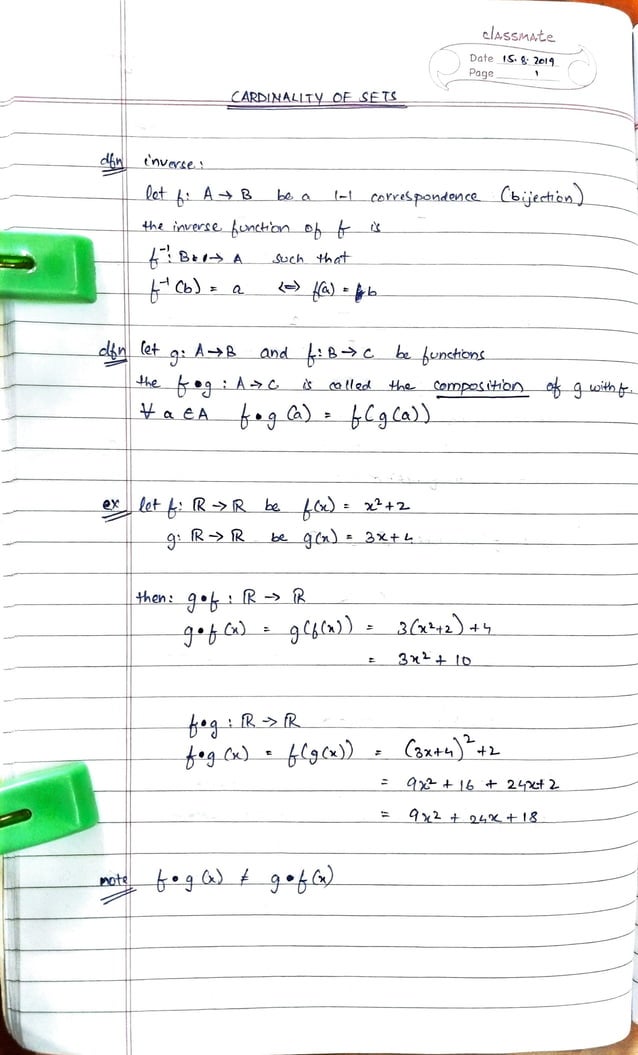 classmate
Date 15.8.2019
Page 1
CARDINALITY OF SETS
dfn inverse:
let f: A → B be a 1-1 correspondence (bijection)
the inverse function of f is
f⁻¹: B → A such that
f⁻¹(b) = a ⇔ f(a) = b
dfn let g: A→B and f: B→C be functions
the f∘g : A→C is called the composition of g with f.
∀ a ∈ A f∘g (a) = f(g(a))
ex let f: ℝ → ℝ be f(x) = x²+2
g: ℝ → ℝ be g(x) = 3x+4
then: g∘f : ℝ → ℝ
g∘f (x) = g(f(x)) = 3(x²+2)+4
= 3x² + 10
f∘g : ℝ → ℝ
f∘g (x) = f(g(x)) = (3x+4)²+2
= 9x² + 16 + 24x+2
= 9x² + 24x + 18
note f∘g (x) ≠ g∘f(x)